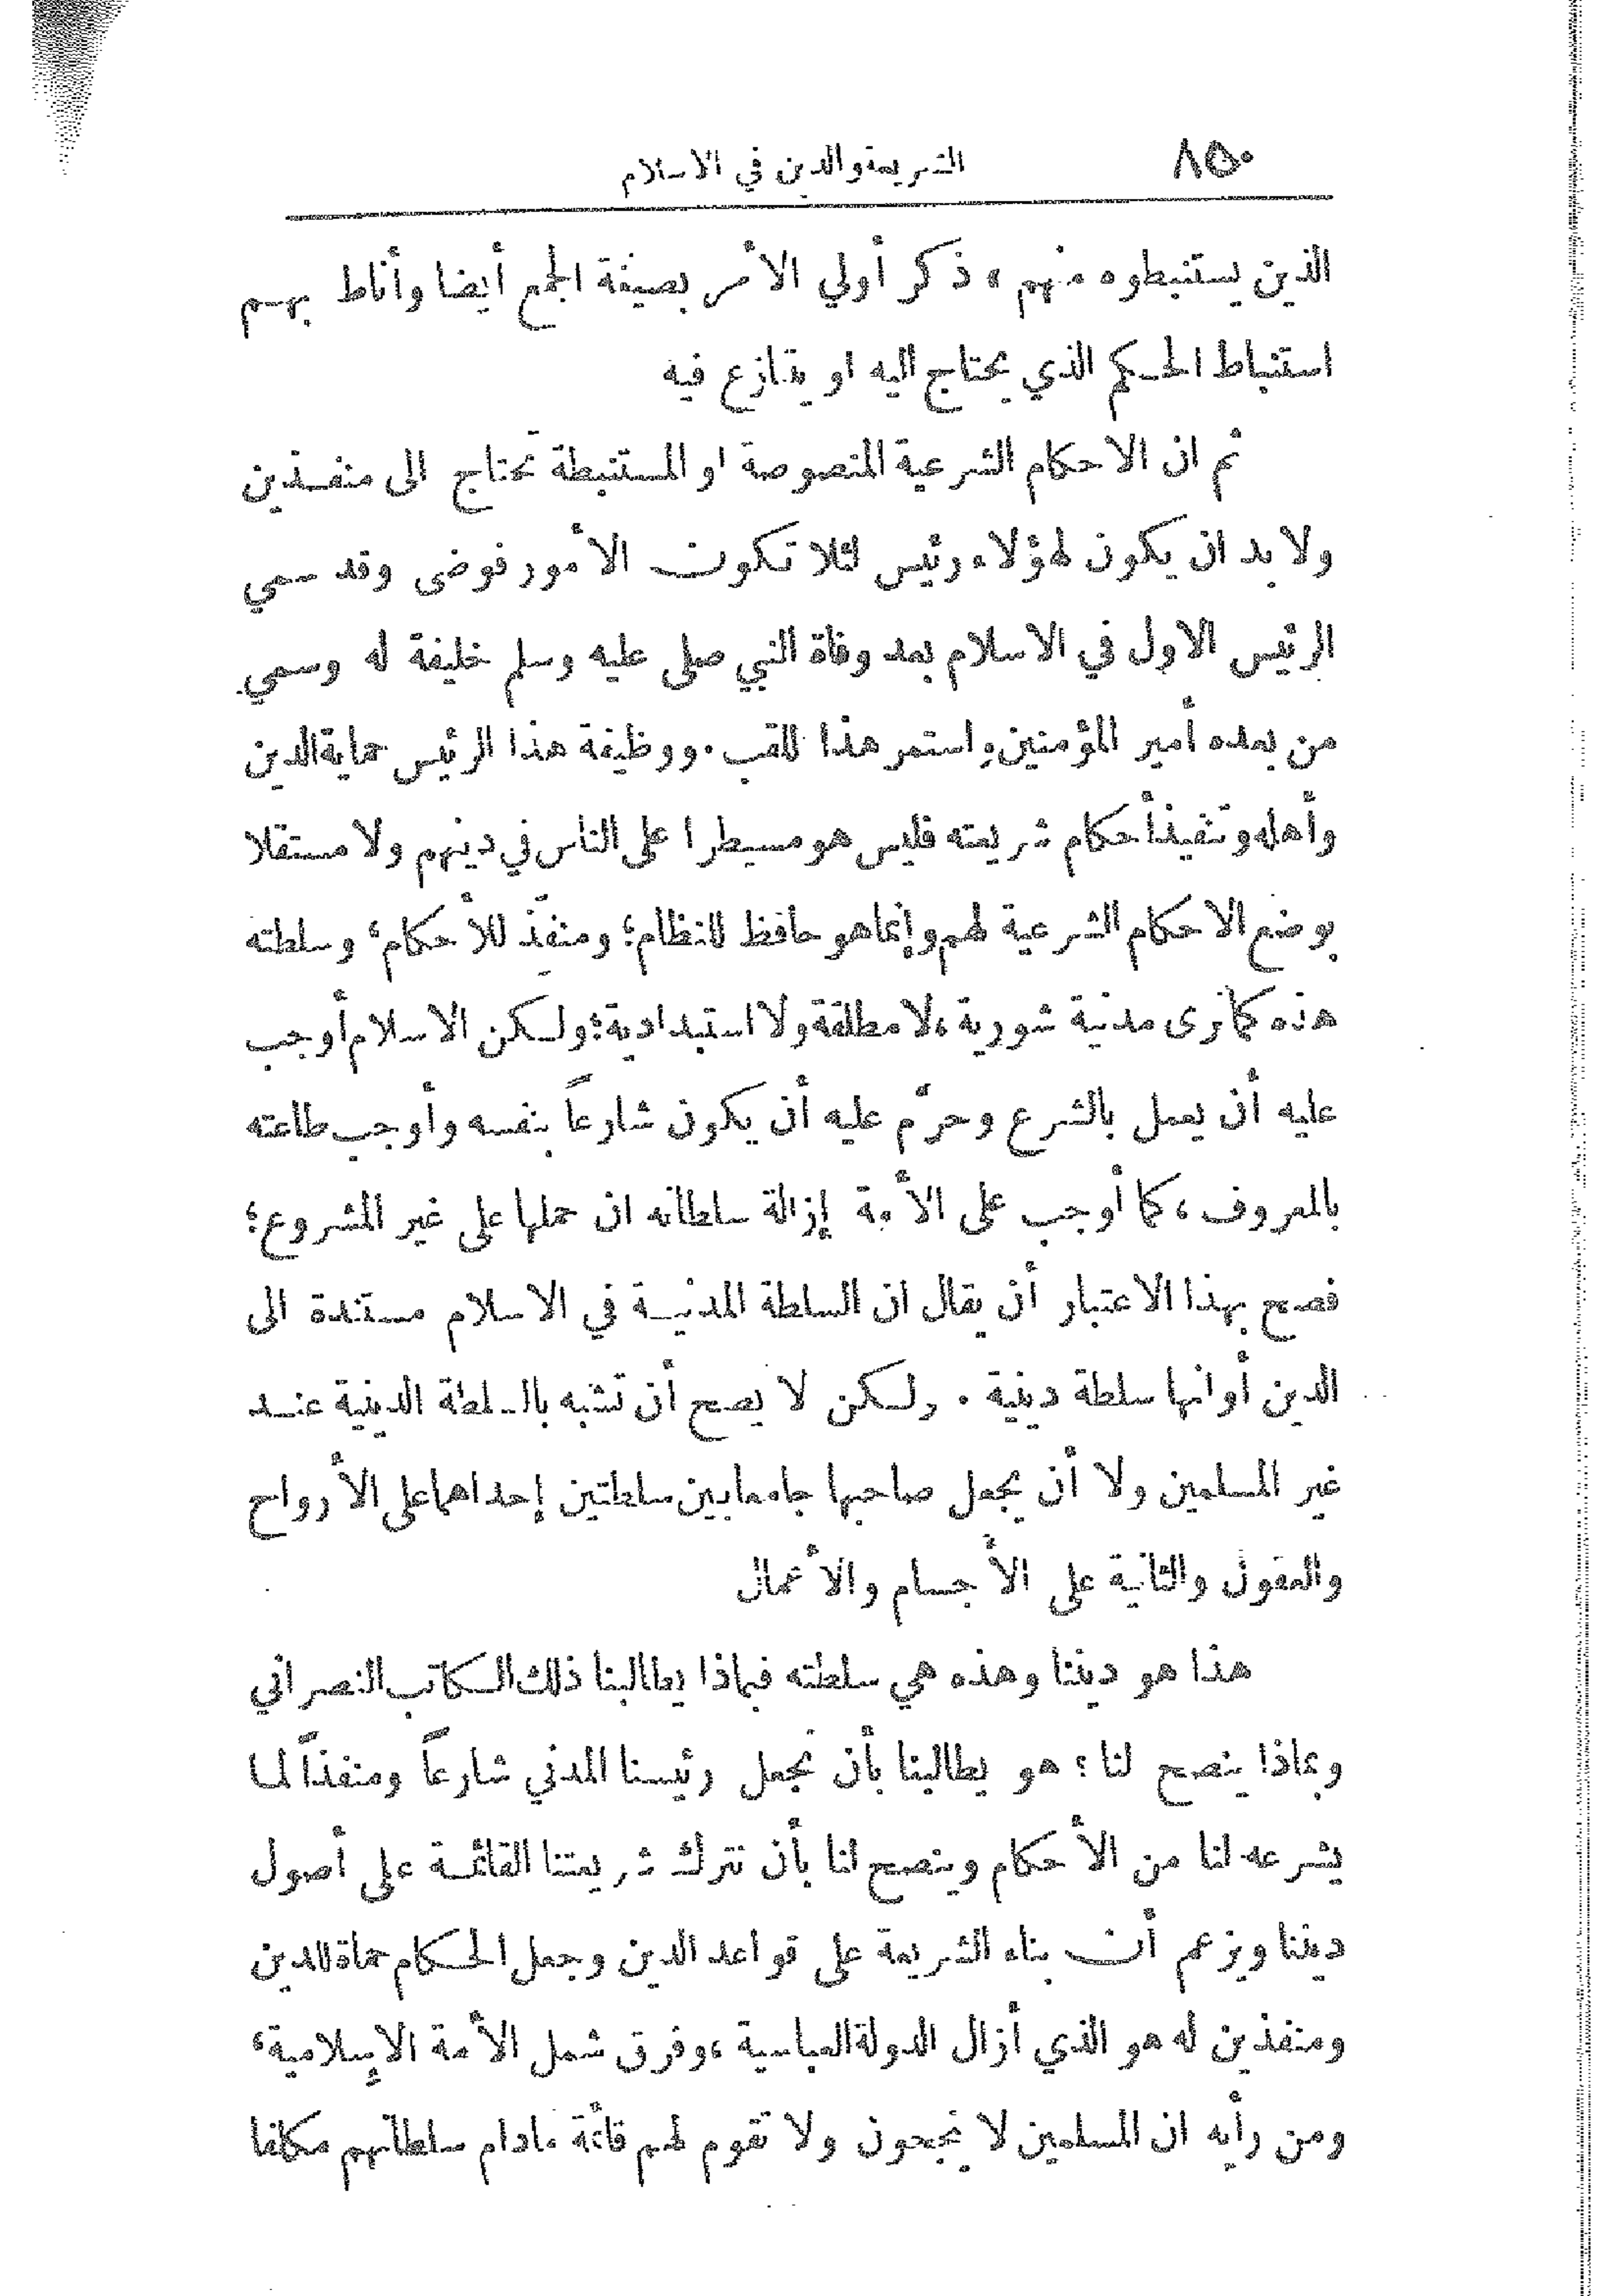 ٨٥٠
الشريعة والدين في الاسلام
الذين يستنبطوه منهم » ذكر أولي الأمر بصيغة الجمع أيضا وأناط بهم
استنباط الحكم الذي يحتاج اليه او يتنازع فيه
ثم ان الاحكام الشرعية المنصوصة او المستنبطة تحتاج الى منفذين
ولا بد ان يكون لهؤلاء رئيس لئلا تكون الأمور فوضى وقد سمي
الرئيس الاول في الاسلام بعد وفاة النبي صلى عليه وسلم خليفة له وسمي
من بعده أمير المؤمنين واستمر هذا اللقب . ووظيفة هذا الرئيس حماية الدين
وأهله وتنفيذ أحكام شريعته فليس هو مسيطرا على الناس في دينهم ولا مستقلا
بوضع الاحكام الشرعية لهم وإنما هو حافظ للنظام ؛ ومنفّذ للأحكام ، وسلطته
هذه كما ترى مدنية شورية ، لا مطلقة ولا استبدادية ؛ ولكن الاسلام أوجب
عليه أن يعمل بالشرع وحرّم عليه أن يكون شارعاً بنفسه وأوجب طاعته
بالمعروف ، كما أوجب على الأمة إزالة سلطانه ان حملها على غير المشروع ؛
فصح بهذا الاعتبار أن يقال ان السلطة المدنية في الاسلام مستندة الى
الدين أو انها سلطة دينية . ولكن لا يصح أن تشبه بالسلطة الدينية عند
غير المسلمين ولا أن يجعل صاحبها جامعا بين سلطتين إحداهما على الأرواح
والعقول والثانية على الأجسام والأعمال
هذا هو ديننا وهذه هي سلطته فبماذا يطالبنا ذلك الكاتب النصراني
وبماذا ينصح لنا ؟ هو يطالبنا بأن نجعل رئيسنا المدني شارعاً ومنفذاً لما
يشرعه لنا من الأحكام وينصح لنا بأن نترك شريعتنا القائمة على أصول
ديننا ويزعم أن بناء الشريعة على قواعد الدين وجعل الحكام حماة للدين
ومنفذين له هو الذي أزال الدولة العباسية ، وفرق شمل الأمة الإسلامية ،
ومن رأيه ان المسلمين لا ينجحون ولا تقوم لهم قائمة مادام سلطانهم مكلفا